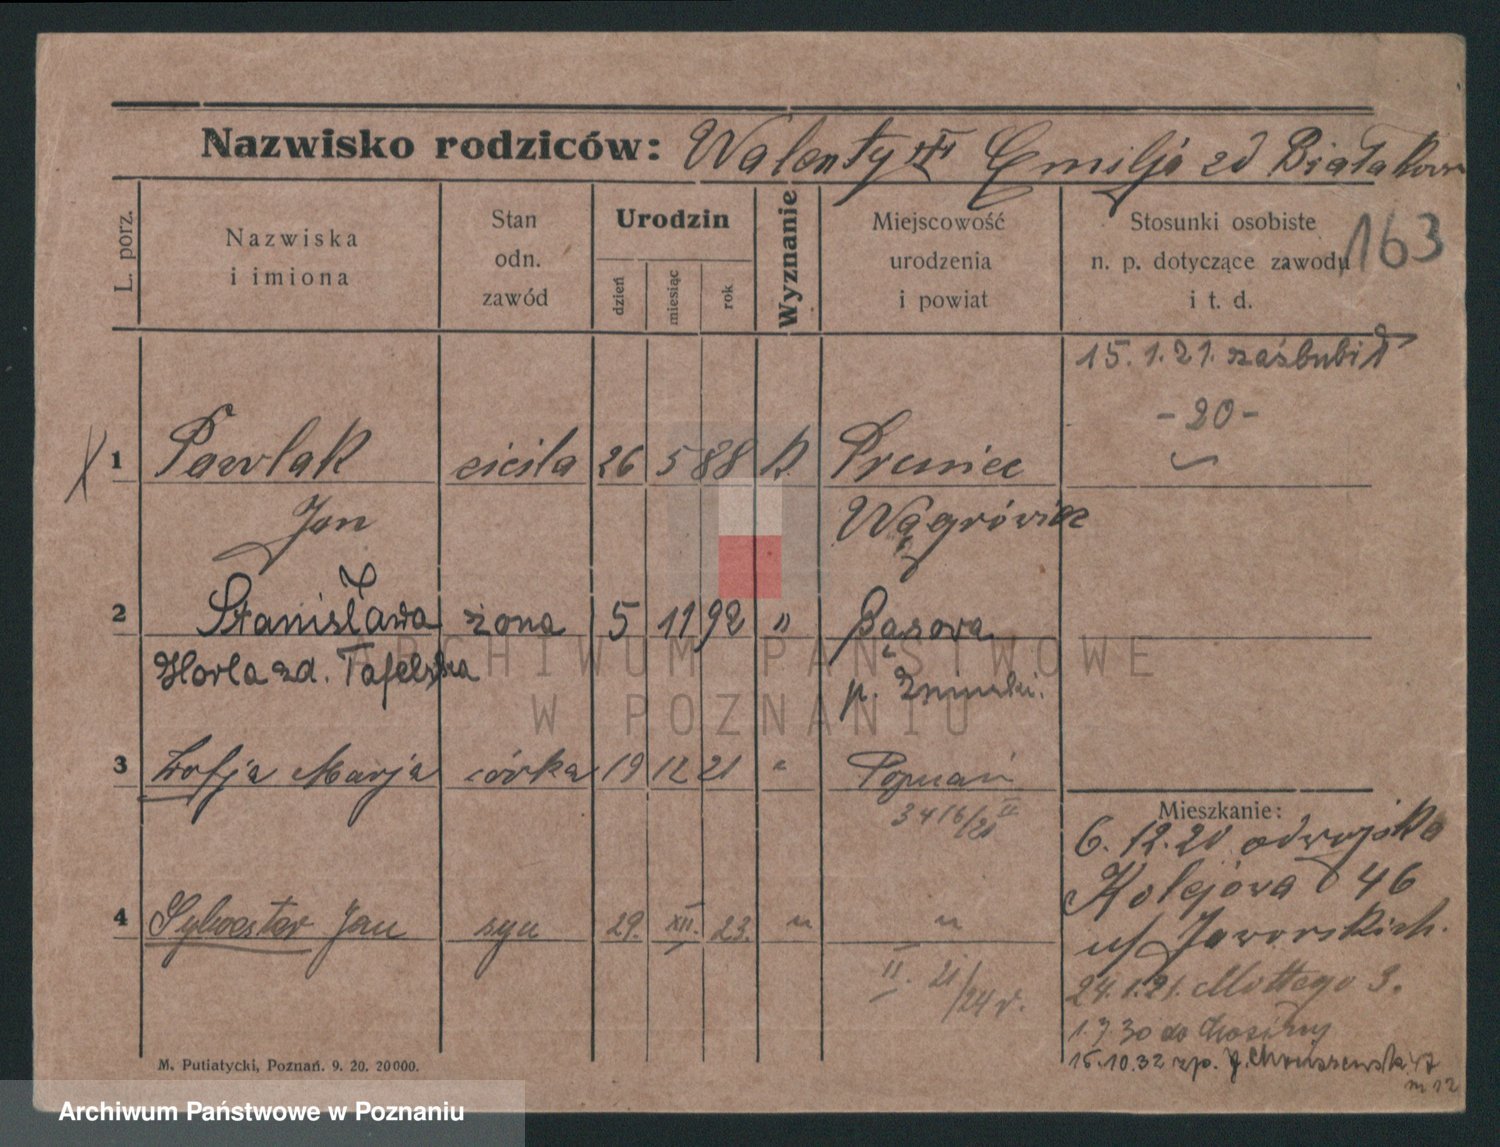 Nazwisko rodziców: Walenty i Emilja zd Białakow
L. porz.
Nazwiska i imiona
Stan odn. zawód
Urodzin
dzień
miesiąc
rok
Wyznanie
Miejscowość urodzenia i powiat
Stosunki osobiste n. p. dotyczące zawodu i t. d.
163
15.1.21. zaślubił
-20-
1 Pawlak cieśla 26 5 88 k. Prusiec
Jan Wągrówiec
2 Stanisława żona 5 11 92 "
Horla zd. Tafelska p. Żninski.
3 Zofja Marja córka 19 12 21 " Poznań
3416/21 II
Mieszkanie:
6.12.20 od wojska
Kolejowa 46
u/ Jaworskich.
4 Sylwester Jan syn 29. XII. 23. " "
II. 21/24 r.
24.1.21. Mottego 3.
1.7 30 do
15.10.32 J.
M. Putiatycki, Poznań. 9. 20. 20000.
ARCHIWUM PAŃSTWOWE
W POZNANIU
Archiwum Państwowe w Poznaniu